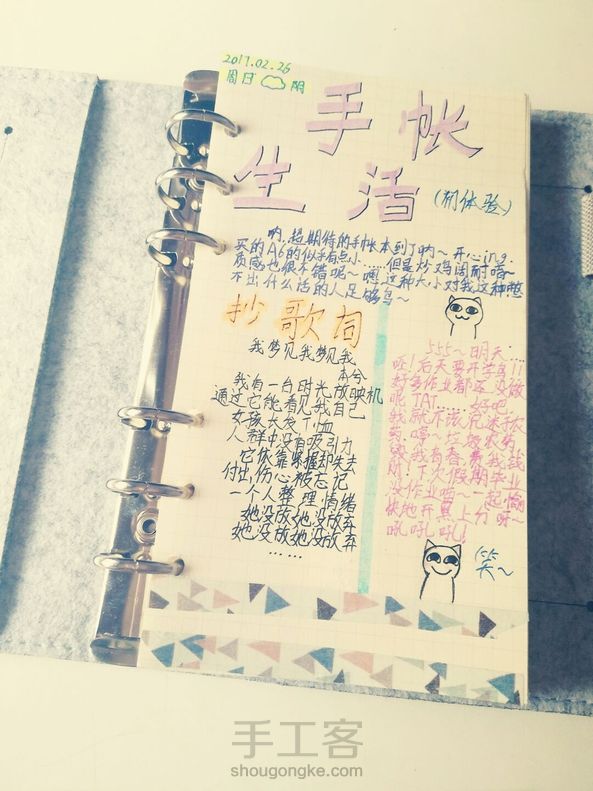 2017.02.26
周日 阴
手帐
生活
(初体验)
呐,超期待的手帐本到了呐~开心ing.
买的A6的似乎有点小……但是炒鸡闹耐喑~
质感也很不错呢~嗯这种大小对我这种憋
不出什么话的人足够鸟~
抄歌词
我梦见我梦见我
本兮
我有一台时光放映机
通过它能看见我自己
女孩大大T恤
人群中没有吸引力
它依靠掌握却失去
付出伤心被忘记
一个人整理情绪
她没放她没放弃
她没放她没放弃
……
555~明天……
哦!后天要开学鸟!!
好多作业都还没做
呢TAT……好吧
我就不该沉迷农
药,哼~垃圾农药
毁我青春费我钱
财!下次假期毕业
没作业啦~一起愉
快地开黑上分呀~
吼吼吼!
笑~
手工客
shougongke.com